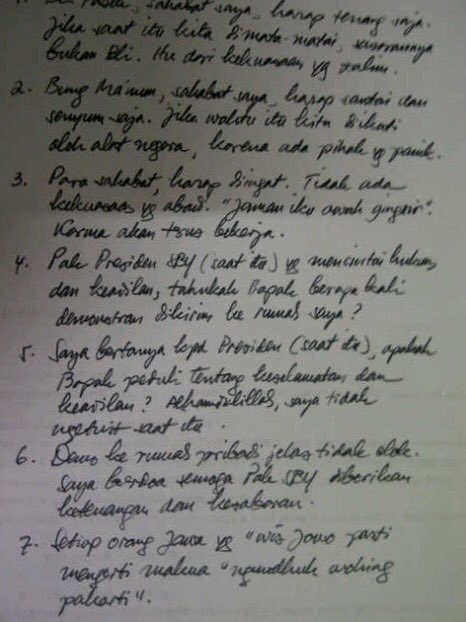 1. sahabat saya, harap tenang saja.
Jika saat itu kita dimata-matai,
bukan Eli. Itu dari kekuasaan yg zalim.
2. Bung Ma'mun, sahabat saya, harap santai dan
senyum saja. Jika waktu itu kita dikuti
oleh alat negara, karena ada pihak yg panik.
3. Para sahabat, harap diingat. Tidak ada
kekuasaan yg abadi. "Jaman iku owah gingsir".
Karma akan terus bekerja.
4. Pak Presiden SBY (saat itu) yg mencintai hukum
dan keadilan, tahukah Bapak berapa kali
demonstran dikirim ke rumah saya?
5. Saya bertanya kpd Presiden (saat itu), apakah
Bapak peduli tentang keselamatan dan
keadilan? Alhamdulillah, saya tidak
ngetwit saat itu.
6. Demo ke rumah pribadi jelas tidak elok.
Saya berdoa semoga Pak SBY diberikan
ketenangan dan kesabaran.
7. Setiap orang Jawa yg "wis Jowo pasti
mengerti makna "ngundhuh wohing
pakarti".